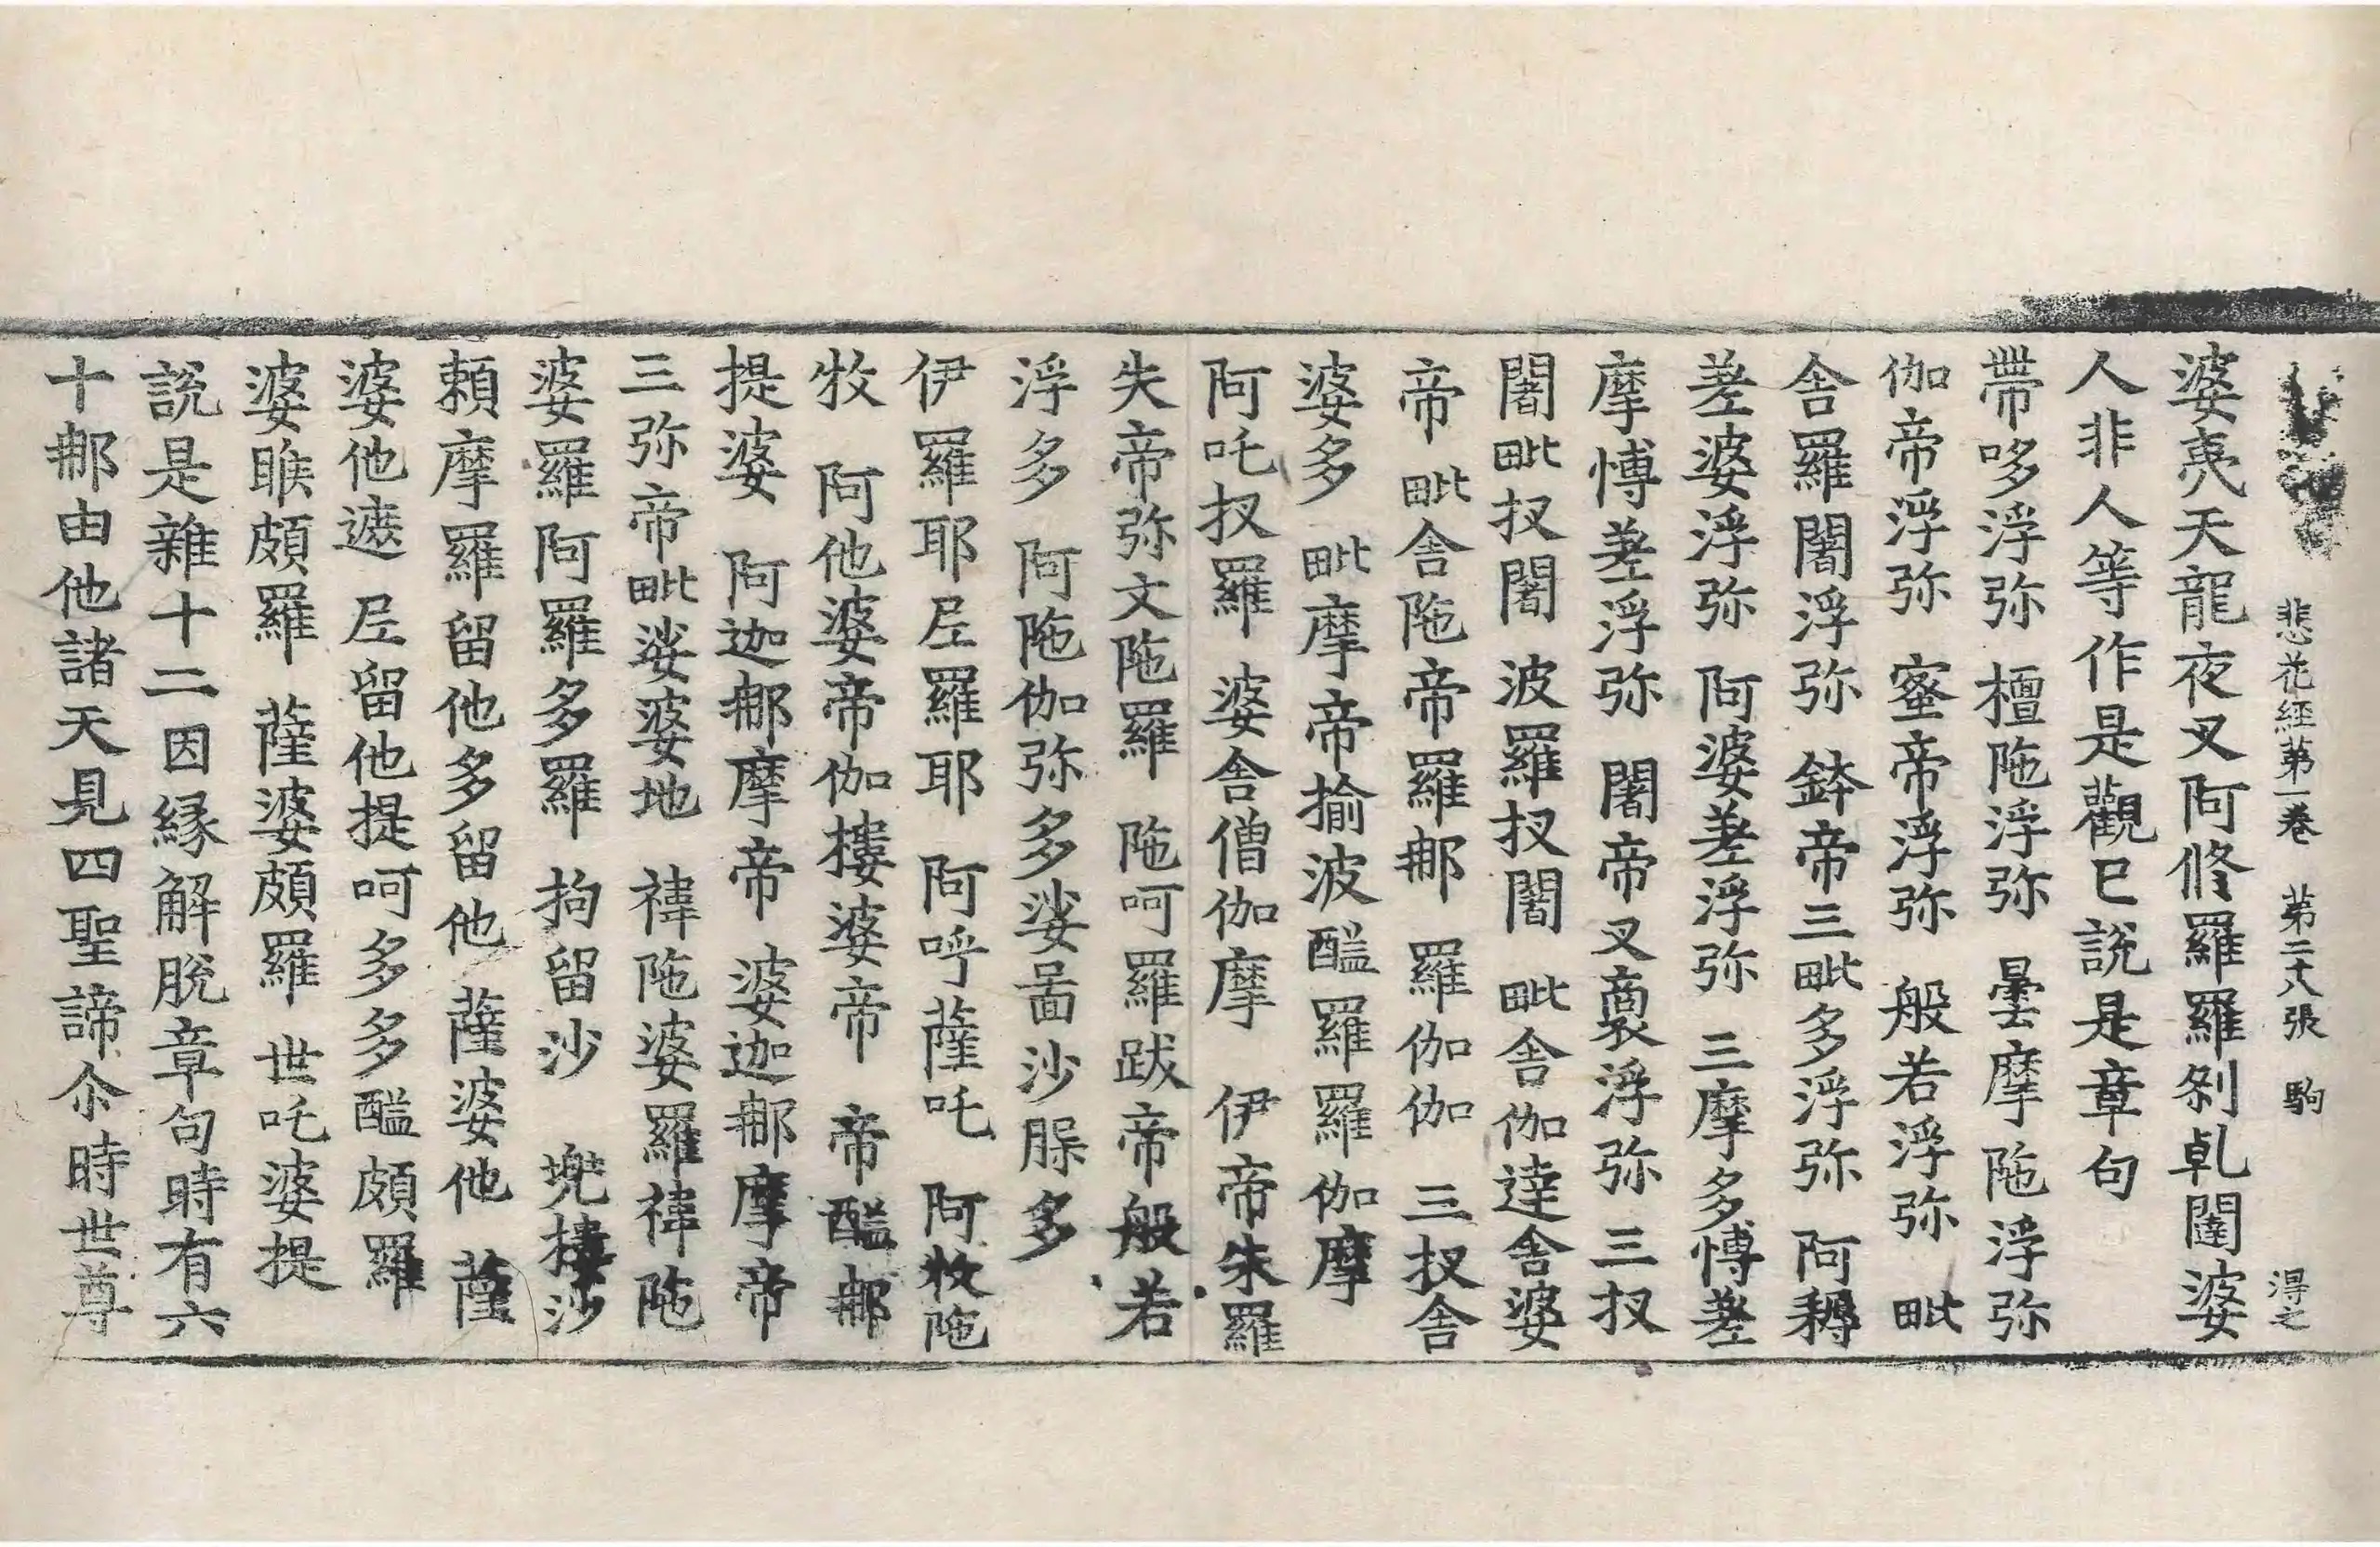 悲花經第一卷 第二十八張 駒 淂之
婆夷天龍夜叉阿修羅羅剎乹闥婆
人非人等作是觀已說是章句
帶哆浮弥 檀陁浮弥 曇摩陁浮弥
伽帝浮弥 蜜帝浮弥 般若浮弥 毗
舍羅闍浮弥 鉢帝三毗多浮弥 阿耨
差婆浮弥 阿婆差浮弥 三摩多慱差
摩慱差浮弥 闍帝叉裔浮弥 三扠
闍毗扠闍 波羅扠闍 毗舍伽達舍婆
帝 毗舍陁帝羅郍 羅伽伽 三扠舍
婆多 毗摩帝揄波醯羅羅伽摩
阿吒扠羅 婆舍僧伽摩 伊帝朱羅
失帝弥文陁羅 陁呵羅跋帝般若
浮多 阿陁伽弥多娑啚沙脲多
伊羅耶𡰱羅耶 阿呼薩吒 阿牧陁
牧 阿他婆帝伽樓婆帝 帝醯郍
提婆 阿迦郍摩帝 婆迦郍摩帝
三弥帝毗娑婆地 禕陁婆羅禕陁
婆羅阿羅多羅 拘留沙 兠樓沙
頼摩羅留他多留他 薩婆他 薩
婆他遮 𡰱留他提呵多多醯頗羅
婆睺頗羅 薩婆頗羅 世吒婆提
說是雜十二因緣解脫章句時有六
十郍由他諸天見四聖諦尒時世尊